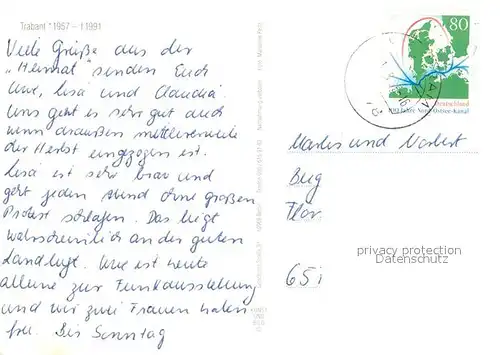 Trabant *1957 – †1991
Viele Grüße aus der
„Heimat" senden Euch
Uwe, Lisa und Claudia.
Uns geht es sehr gut auch
wenn draußen mittlerweile
der Herbst eingezogen ist.
Lisa ist sehr brav und
geht jeden Abend ohne großen
Protest schlafen. Das liegt
wahrscheinlich an der guten
Landluft. Uwe ist heute
alleine zur Funkausstellung
und wir zwei Frauen haben
frei. Bis Sonntag
80
Deutschland
100 Jahre Nord-Ostsee-Kanal
und Norbert
65
privacy protection
Datenschutz